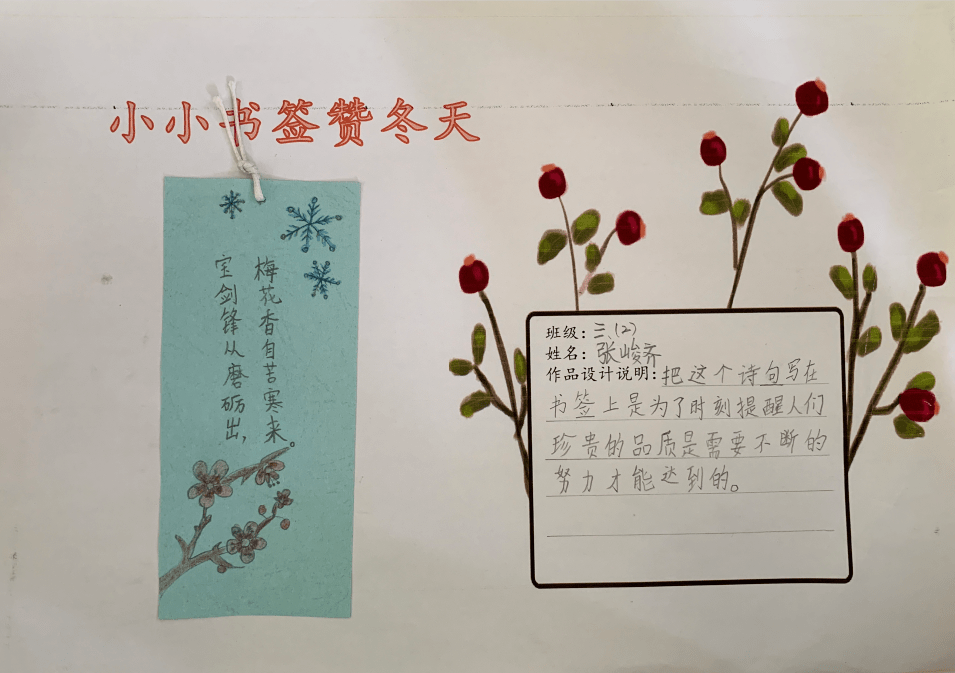 小小书签赞冬天
宝剑锋从磨砺出，
梅花香自苦寒来。
班级：三、(2)
姓名：张峻齐
作品设计说明：把这个诗句写在
书签上是为了时刻提醒人们
珍贵的品质是需要不断的
努力才能达到的。